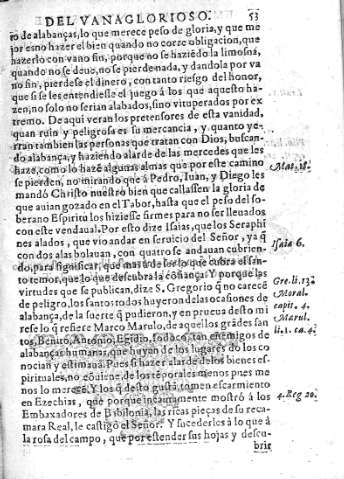 DEL VANAGLORIOSO. 53
ro de alabanças, lo que merece peso de gloria, y que me
jor es no hazer el bien quando no corre obligacion, que
hazerlo con vano fin, porque no se haziẽdo la limosna,
quando no se deue, no se pierde nada, y dandola por va
no fin, pierdese el dinero, con tanto riesgo del honor,
que si se les entendiesse el juego á los que aquesto ha-
zen, no solo no serian alabados, sino vituperados por ex
tremo. De aqui veran los pretensores de esta vanidad,
quan ruin y peligrosa es su mercancia, y quanto ye-
rran tambien las personas que tratan con Dios, buscan-
do alabança, y haziẽdo alarde de las mercedes que les
haze, como lo hazẽ algunas almas que por este camino
se pierden, no mirando que á Pedro, Iuan, y Diego les
mandó Christo nuestro bien que callassen la gloria de
que auian gozado en el Tabor, hasta que el peso del so-
berano Espiritu los hiziesse firmes para no ser lleuados
con este vendaual. Por esto dize Isaias, que los Seraphi
nes alados, que vio andar en seruicio del Señor, ya q̃
con dos alas bolauan, con quatro se andauan cubrien-
do, para significar, que mas ha de ser lo que cubra el san-
to temor, que lo que descubra la cõfiança. Y porque las
virtudes que se publican, dize S. Gregorio q̃ no carecẽ
de peligro, los santos todos huyerõ de las ocasiones de
alabança, de la suerte q̃ pudieron, y en prueua desto mi
rese lo q̃ refiere Marco Marulo, de aquellos grãdes san-
tos, Benito, Antonio, Egidio, Iodoco, tan enemigos de
alabanças humanas, que huyan de los lugares do los co
nocian y estimauã. Pues si hazer alarde de los bienes es-
pirituales, no cõuiene, de los tẽporales menos pues me
nos lo merecẽ. Y los q̃ desto gustã, tomen escarmiento
en Ezechias, que porque incautamente mostró á los
Embaxadores de Babilonia, las ricas pieças de su reca-
mara Real, le castigó el Señor. Y sucederles á lo que á
la rosa del campo, que por estender sus hojas y descu-
brir
Mat. 18.
Isaiæ 6.
Gre. li. 13.
Moral.
capit. 4.
Marul.
li. 1. ca. 4.
4. Reg 20.